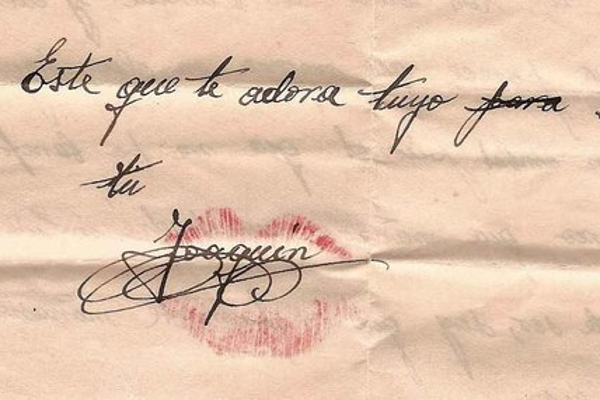 Este que te adora tuyo para
tu
Joaquin